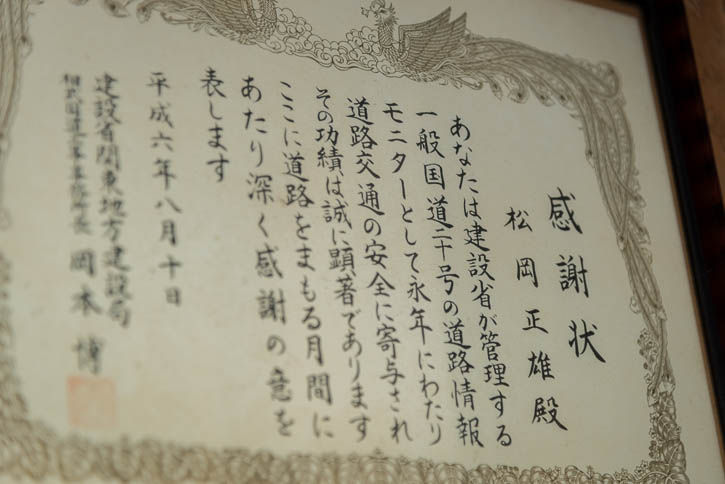 感謝状
松岡正雄殿
あなたは建設省が管理する
一般国道二十号の道路情報
モニターとして永年にわたり
道路交通の安全に寄与され
その功績は誠に顕著であります
ここに道路をまもる月間に
あたり深く感謝の意を
表します
平成六年八月十日
建設省関東地方建設局
岡本博